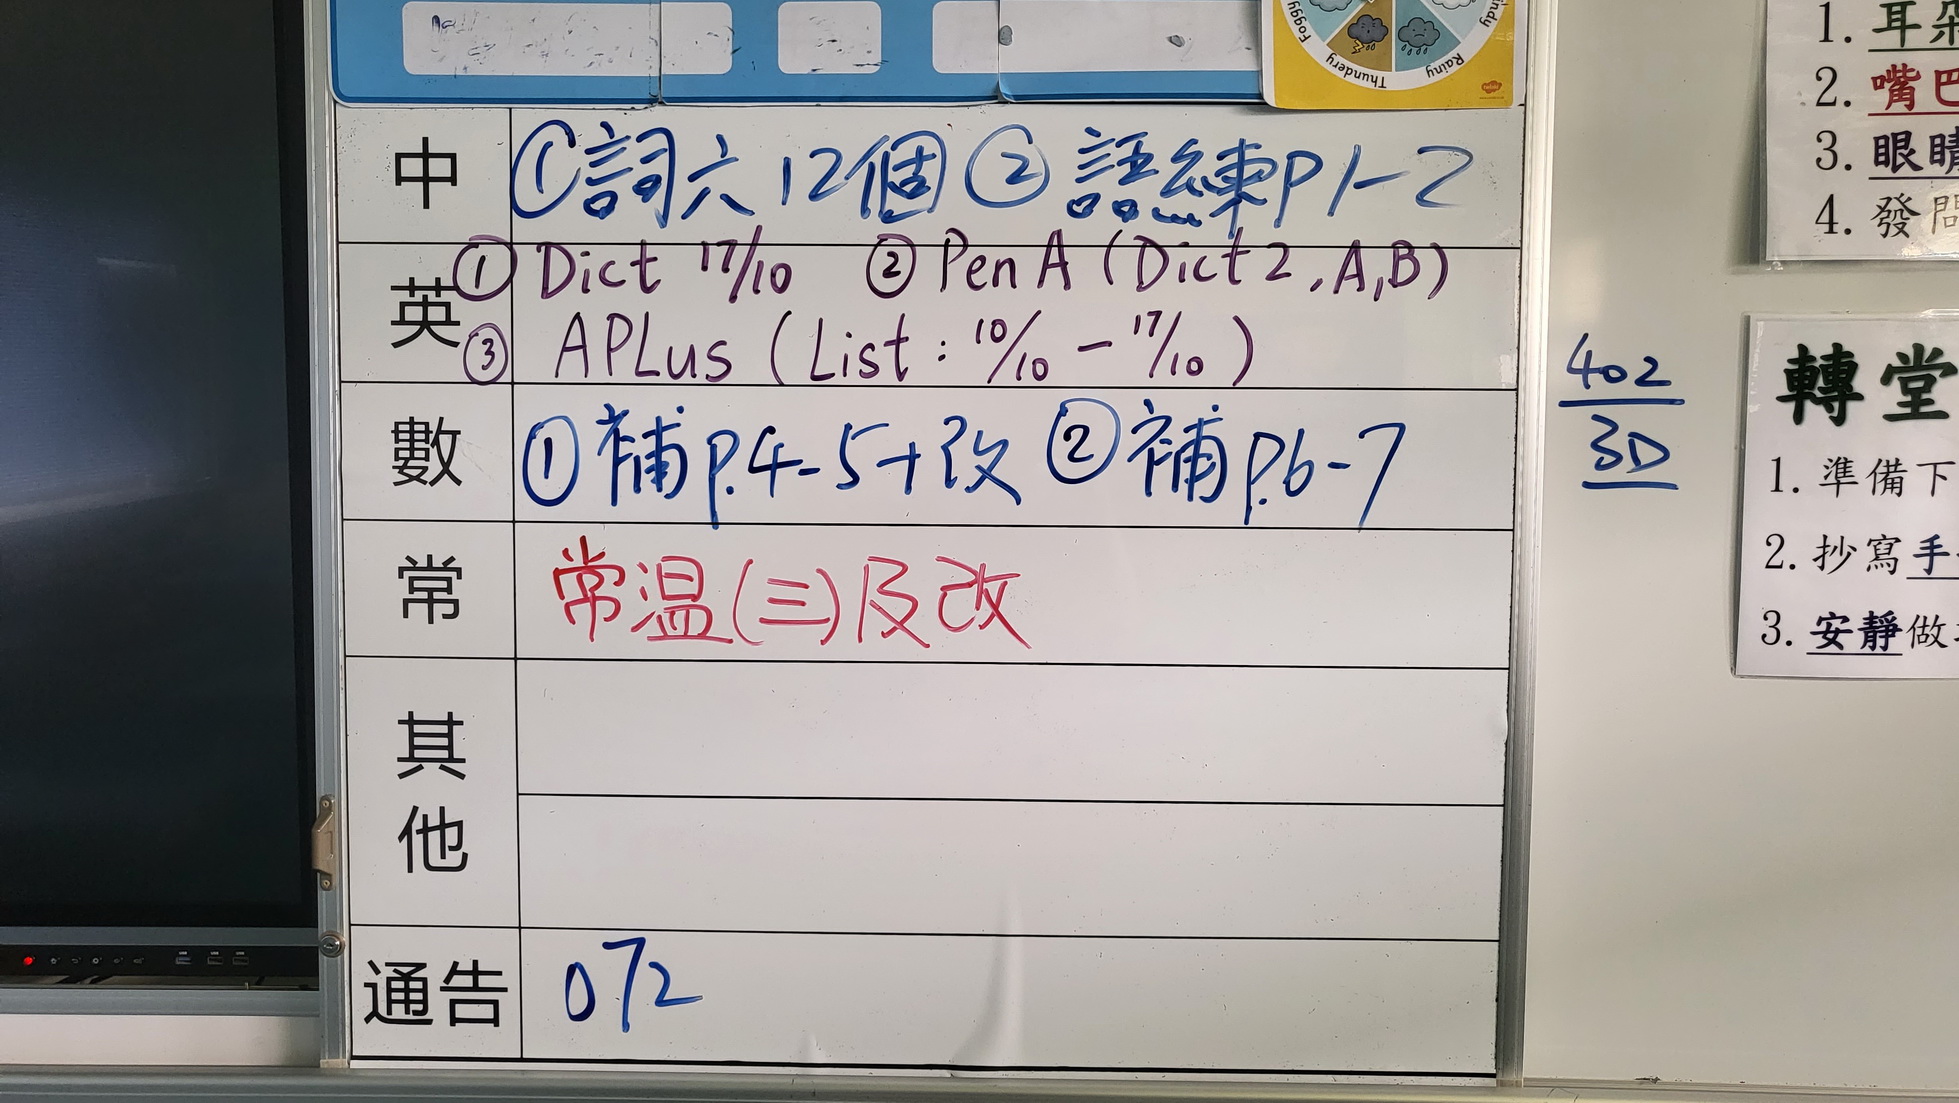 Foggy
Thundery
Rainy
中
①詞六12個 ②語練P1-2
英
① Dict 17/10 ② Pen A (Dict 2, A, B)
③ APLus (List: 10/10 - 17/10)
數
①補P.4-5+改 ②補P.6-7
常
常温(三)及改
其他
通告
072
402
3D
1. 耳朵
2. 嘴巴
3. 眼睛
4. 發問
轉堂
1. 準備下
2. 抄寫手
3. 安靜做